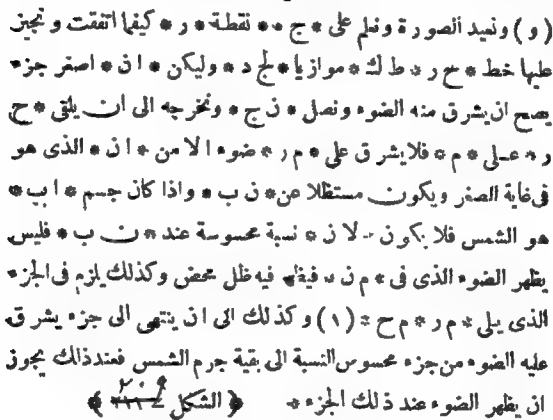 (و) ونعيد الصورة ونعلم على * ج * * نقطة * ر * كيفما اتفقت ونجيز
عليها خط * ح ر * ط ك * موازيا * لج د * وليكن * ا ن * اصغر جزء
يصح ان يشرق منه الضوء ونصل * ن ج * ونخرجه الى ان يلقى * ح
ر * عـلى * م * فلا يشرق على * م ر * ضوء الا من * ا ن * الذى هو
فى غاية الصغر ويكون مستظلا عن * ن ب * واذا كان جسم * ا ب *
هو الشمس فلا يكون - لا ن * نسبة محسوسة عند * ن ب * فليس
يظهر الضوء الذى فى * م ن * فيه ظل محض وكذلك يلزم فى الجزء
الذى يلى * م ر * م ح * (١) وكذلك الى ان ينتهى الى جزء يشرق
عليه الضوء من جزء محسوس النسبة الى بقية جرم الشمس فعند ذلك يجوز
ان يظهر الضوء عند ذلك الجزء * ﴿ الشكل ٢٠ ﴾